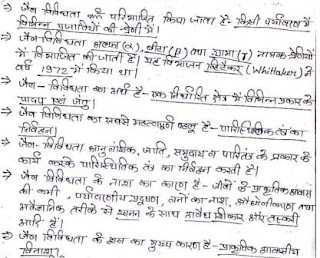 → जैव विविधता को परिभाषित किया जाता है - किसी पर्यावरण में
विभिन्न प्रजातियों की श्रेणी में।
→ जैव विविधता अल्फा (α), बीटा (β) तथा गामा (γ) नामक श्रेणियों
में विभाजित की जाती है। यह विभाजन व्हिटैकर (Whittaker) ने
वर्ष 1972 में किया था।
→ जैव - विविधता का अर्थ है - एक निर्धारित क्षेत्र में विभिन्न प्रकार के
पादप एवं जंतु।
→ जैव विविधता का सबसे महत्वपूर्ण पहलू है - पारिस्थितिक तंत्र का
निर्वहन।
→ जैव - विविधता आनुवांशिक, जाति, समुदाय व पारितंत्र के प्रकार के
कार्य करके पारिस्थितिक तंत्र का निर्वहन करती है।
→ जैव विविधता के नाश का कारण है - जीवों के प्राकृतिक आवास
की कमी, पर्यावरणीय प्रदूषण, वनों का नाश, औद्योगीकरण तथा
अवैज्ञानिक तरीके से खनन के साथ अवैध शिकार और तस्करी
आदि है।
→ जैव विविधता के ह्रास का मुख्य कारण है - प्राकृतिक आवासीय
विनाश।